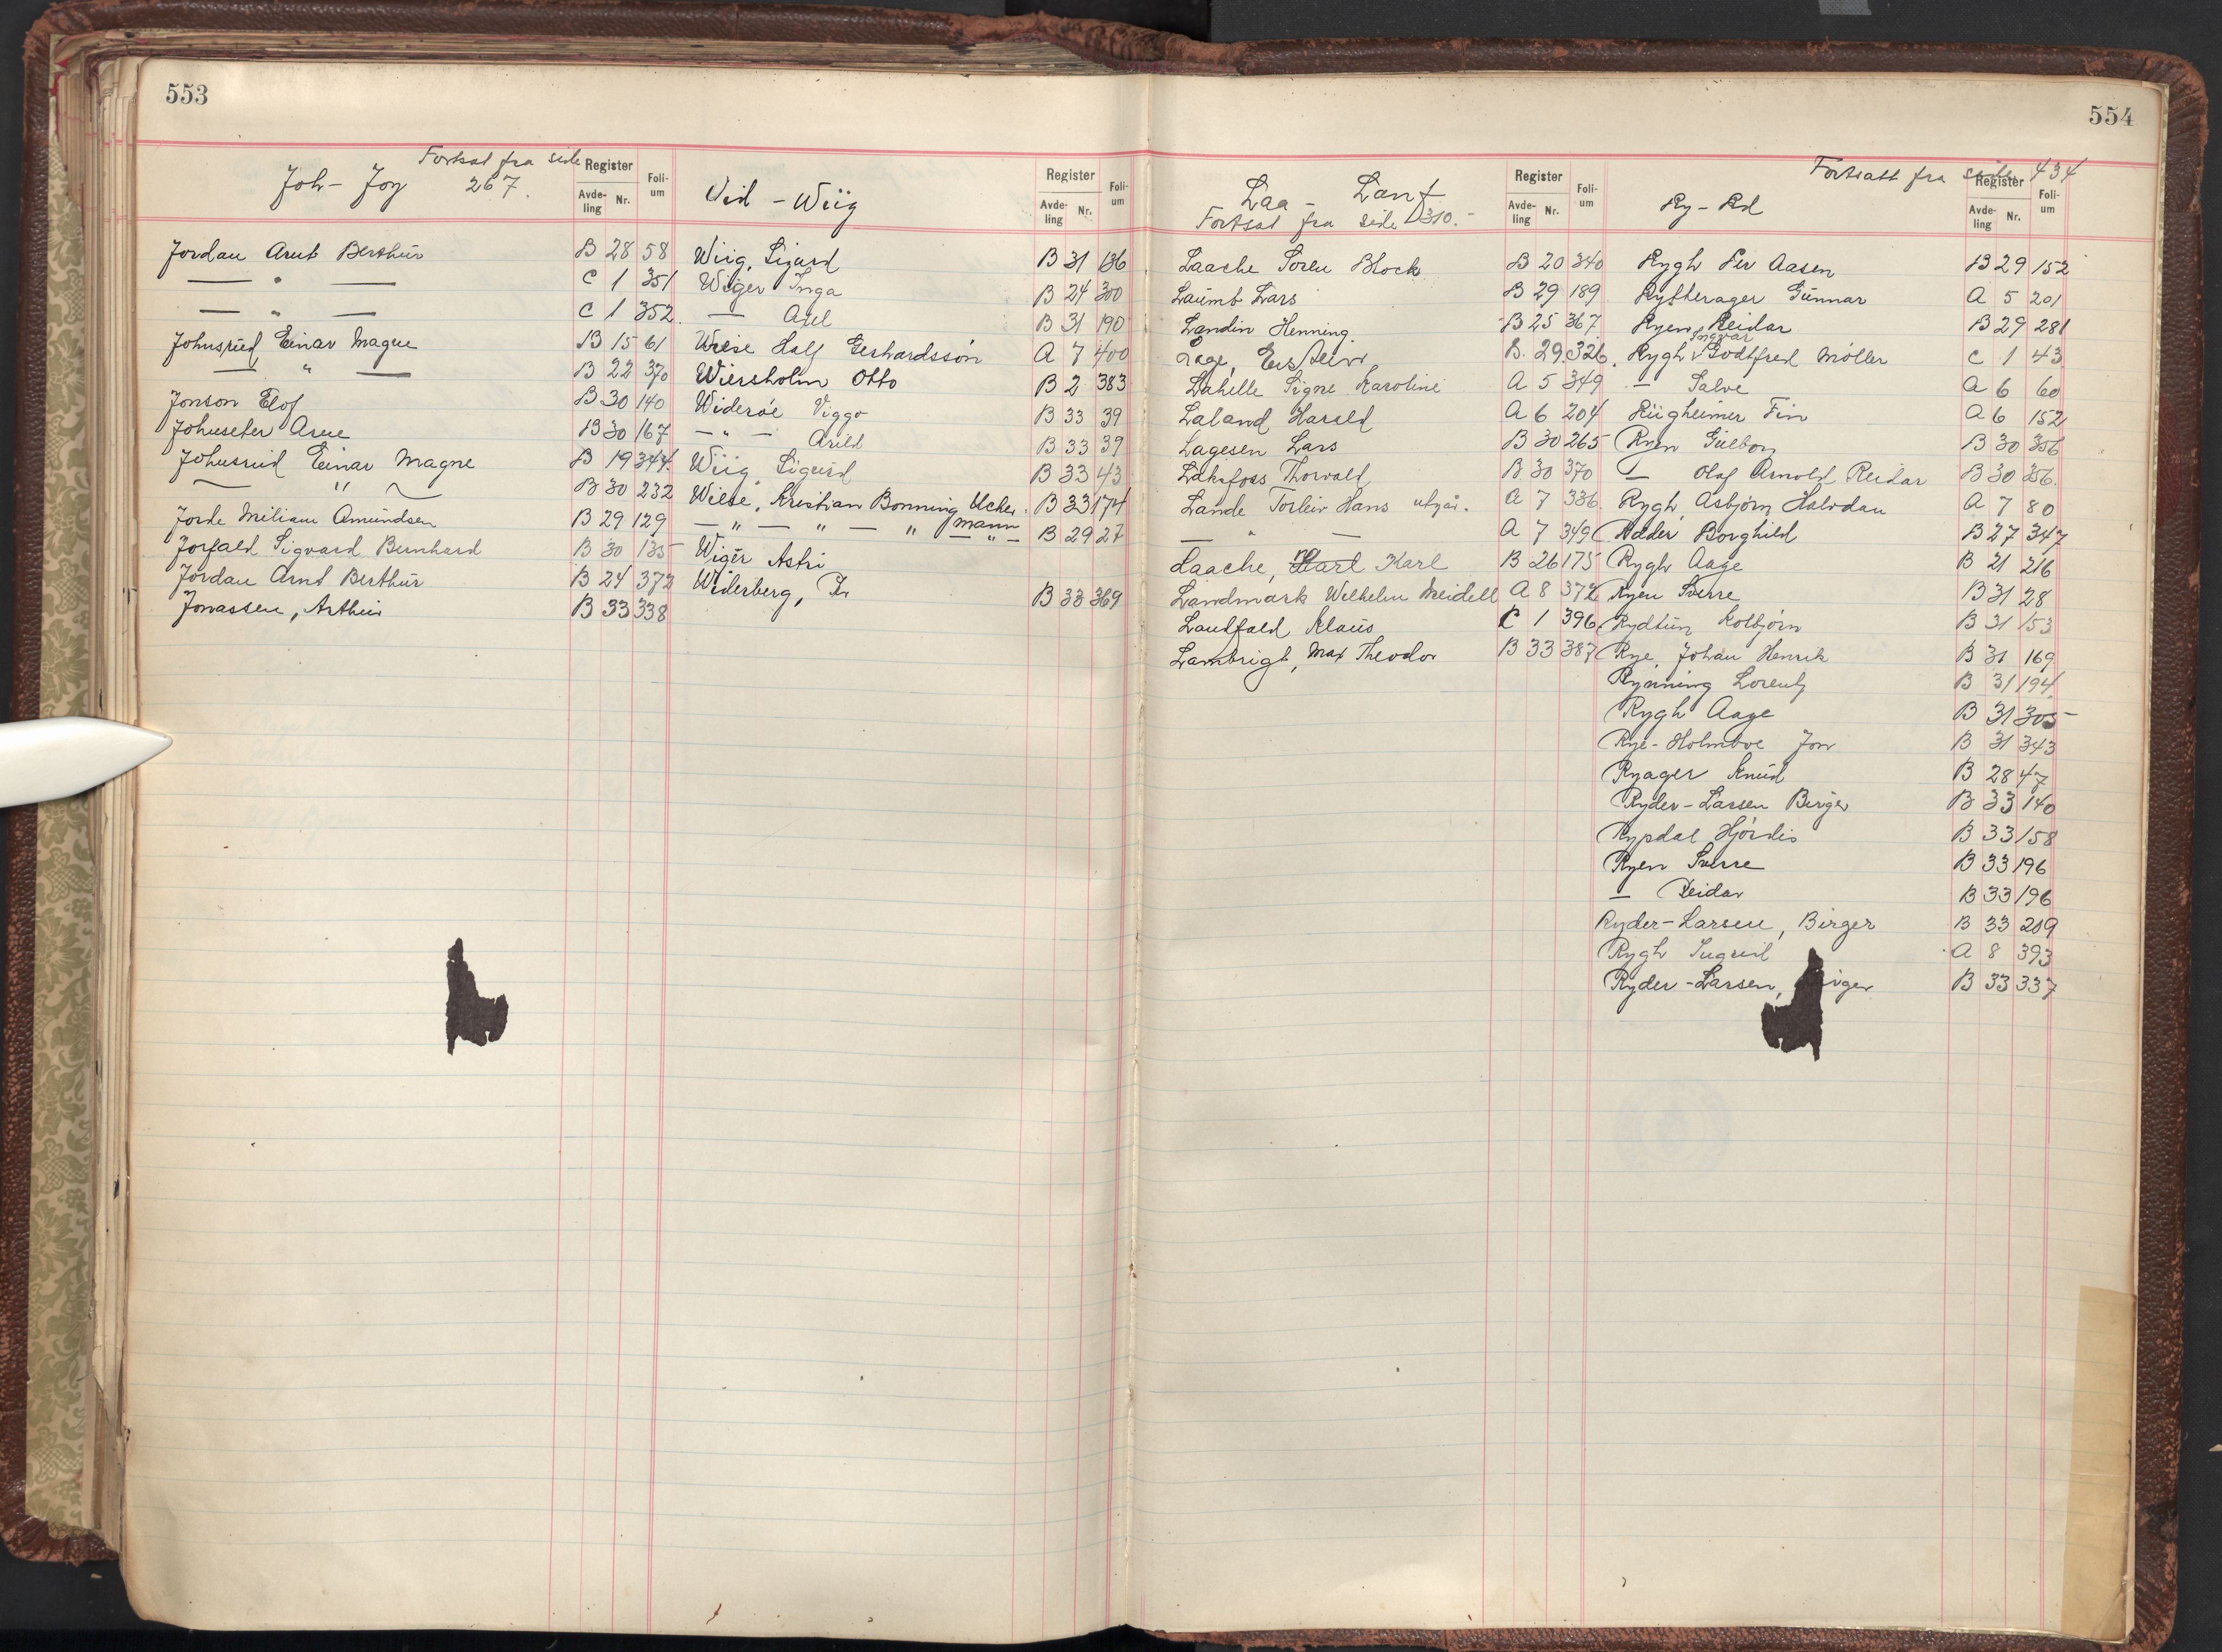 553
Fortsat fra side
Joh - Joy 267.
Register
Avdeling Nr. Folium
Jordan Arnt Berthur B 28 58
— " — C 1 351
— " — C 1 352
Johnsrud Einar Magne B 15 61
— " — B 22 370
Jonson Elof B 30 140
Johnseter Arne B 30 167
Johnsrud Einar Magne B 19 344
— " — B 30 232
Jorde Miliam Amundsen B 29 129
Jorfald Sigvard Bernhard B 30 135
Jordan Arnt Berthur B 24 372
Jonassen, Arthur B 33 338
Wid - Wiig
Register
Avdeling Nr. Folium
Wiig, Sigurd B 31 136
Wiger Inga B 24 300
— Axel B 31 190
Wiese Half Gerhardssøn A 7 400
Wiersholm Otto B 2 383
Widerøe Viggo B 33 39
— " — Arild B 33 39
Wiig Sigurd B 33 43
Wiese, Kristian Bonning Ucker B 33 174
— " — " — " mann — " — B 29 27
Wiger Astri
Widerberg, Per B 33 369
554
Laa - Lanf
Fortsat fra side 310.
Register
Avdeling Nr. Folium
Laache Søren Block B 20 340
Laumb Lars B 29 189
Landin Henning B 25 367
Lage, Eystein B. 29 326
Lahelle Signe Karoline A 5 349
Laland Harald A 6 204
Lagesen Lars B 30 265
Laksfoss Thorvald B 30 370
Lande Torleiv Hans utgår. A 7 336
— " — A 7 349
Laache, Karl B 26 175
Landmark Wilhelm Meidell A 8 372
Landfald Klaus C 1 396
Lambrigt, Max Theodor B 33 387
Fortsatt fra side 434
Ry - Rd
Register
Avdeling Nr. Folium
Rygh Per Aasen B 29 152
Rytterager Gunnar A 5 201
Ryen Reidar B 29 281
Ingvar
Rygh Godtfred Møller C 1 43
— Salve A 6 60
Rügheimer Fin A 6 152
Ryen Gulborg B 30 356
— Olaf Arnold Reidar B 30 356.
Rygh Asbjørn Halvdan A 7 80
Rödder Borghild B 27 347
Rygh Aage B 21 216
Ryen Sverre B 31 28
Rydtun Kolbjørn B 31 153
Rye, Johan Henrik B 31 169
Rynning Lorentz B 31 194
Rygh Aage B 31 305
Rye-Holmboe Jon B 31 343
Ryager Knud B 28 47
Ryder-Larsen Birger B 33 140
Rypdal Hjørdis B 33 158
Ryen Sverre B 33 196
— Reidar B 33 196
Ryder-Larsen, Birger B 33 209
Rygh Ingrid A 8 393
Ryder-Larsen, B 33 337